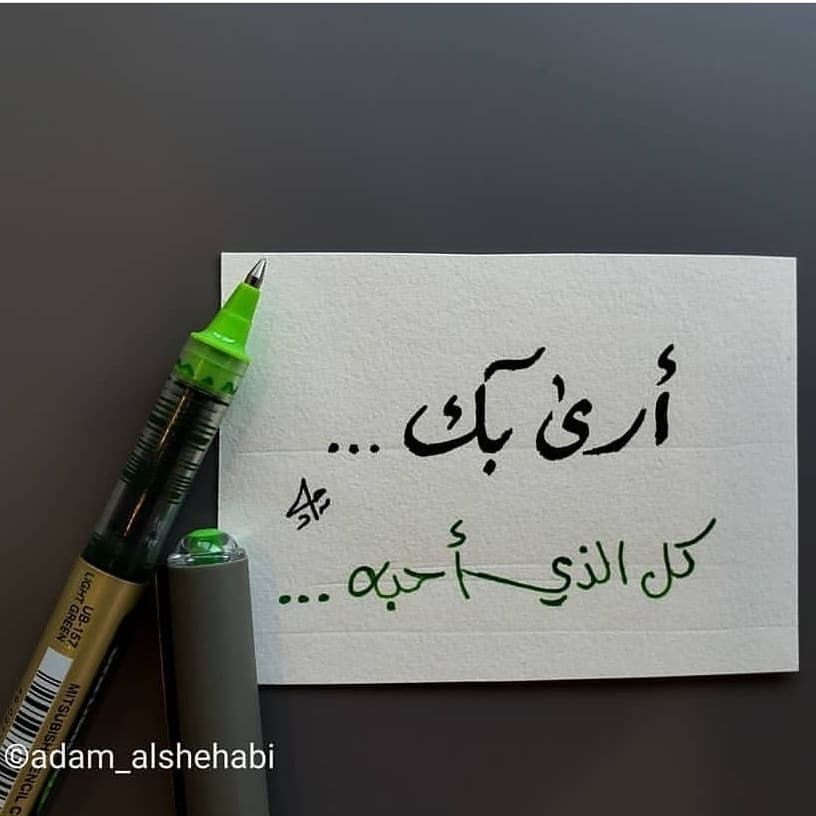 أرىٰ بك ...
كل الذي أحبه ...
UB-157
LIGHT GREEN
©adam_alshehabi